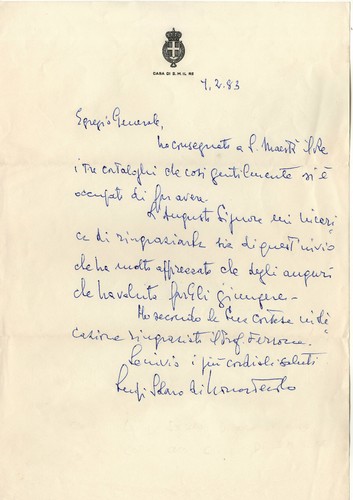 CASA DI S.M. IL RE
4.2.83
Egregio Generale,
ho consegnato a S. Maestà il Re
i tre cataloghi che così gentilmente si è
occupato di far avere.
L'Augusto Signore mi incari=
ca di ringraziarLa sia di quest'invio
che ha molto apprezzato che degli auguri
che ha voluto farGli giungere.
Ho secondo la Sua cortese indi=
cazione ringraziato il Prof.
Le invio i più cordiali saluti